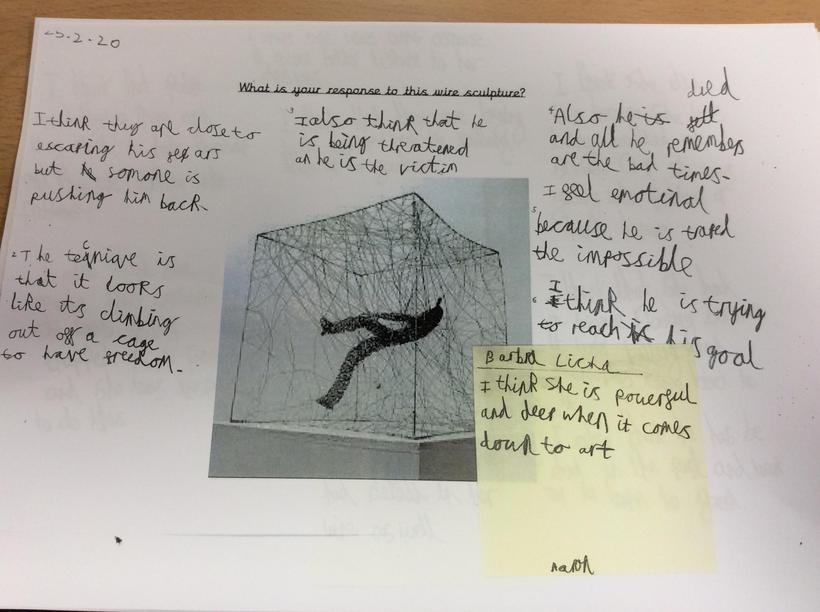 25.2.20
What is your response to this wire sculpture?
I think they are close to
escaping his fears
but somone is
pushing him back
2 The tecnique is
that it looks
like its climbing
out off a cage
to have freedom.
3 I also think that he
is being threatened
an he is the victim
died
4 Also he is
and all he remembers
are the bad times.
I feel emotinal
5 because he is traped
the impossible
6 I think he is trying
to reach his goal
Barbra Licha
I think She is powerful
and deep when it comes
down to art